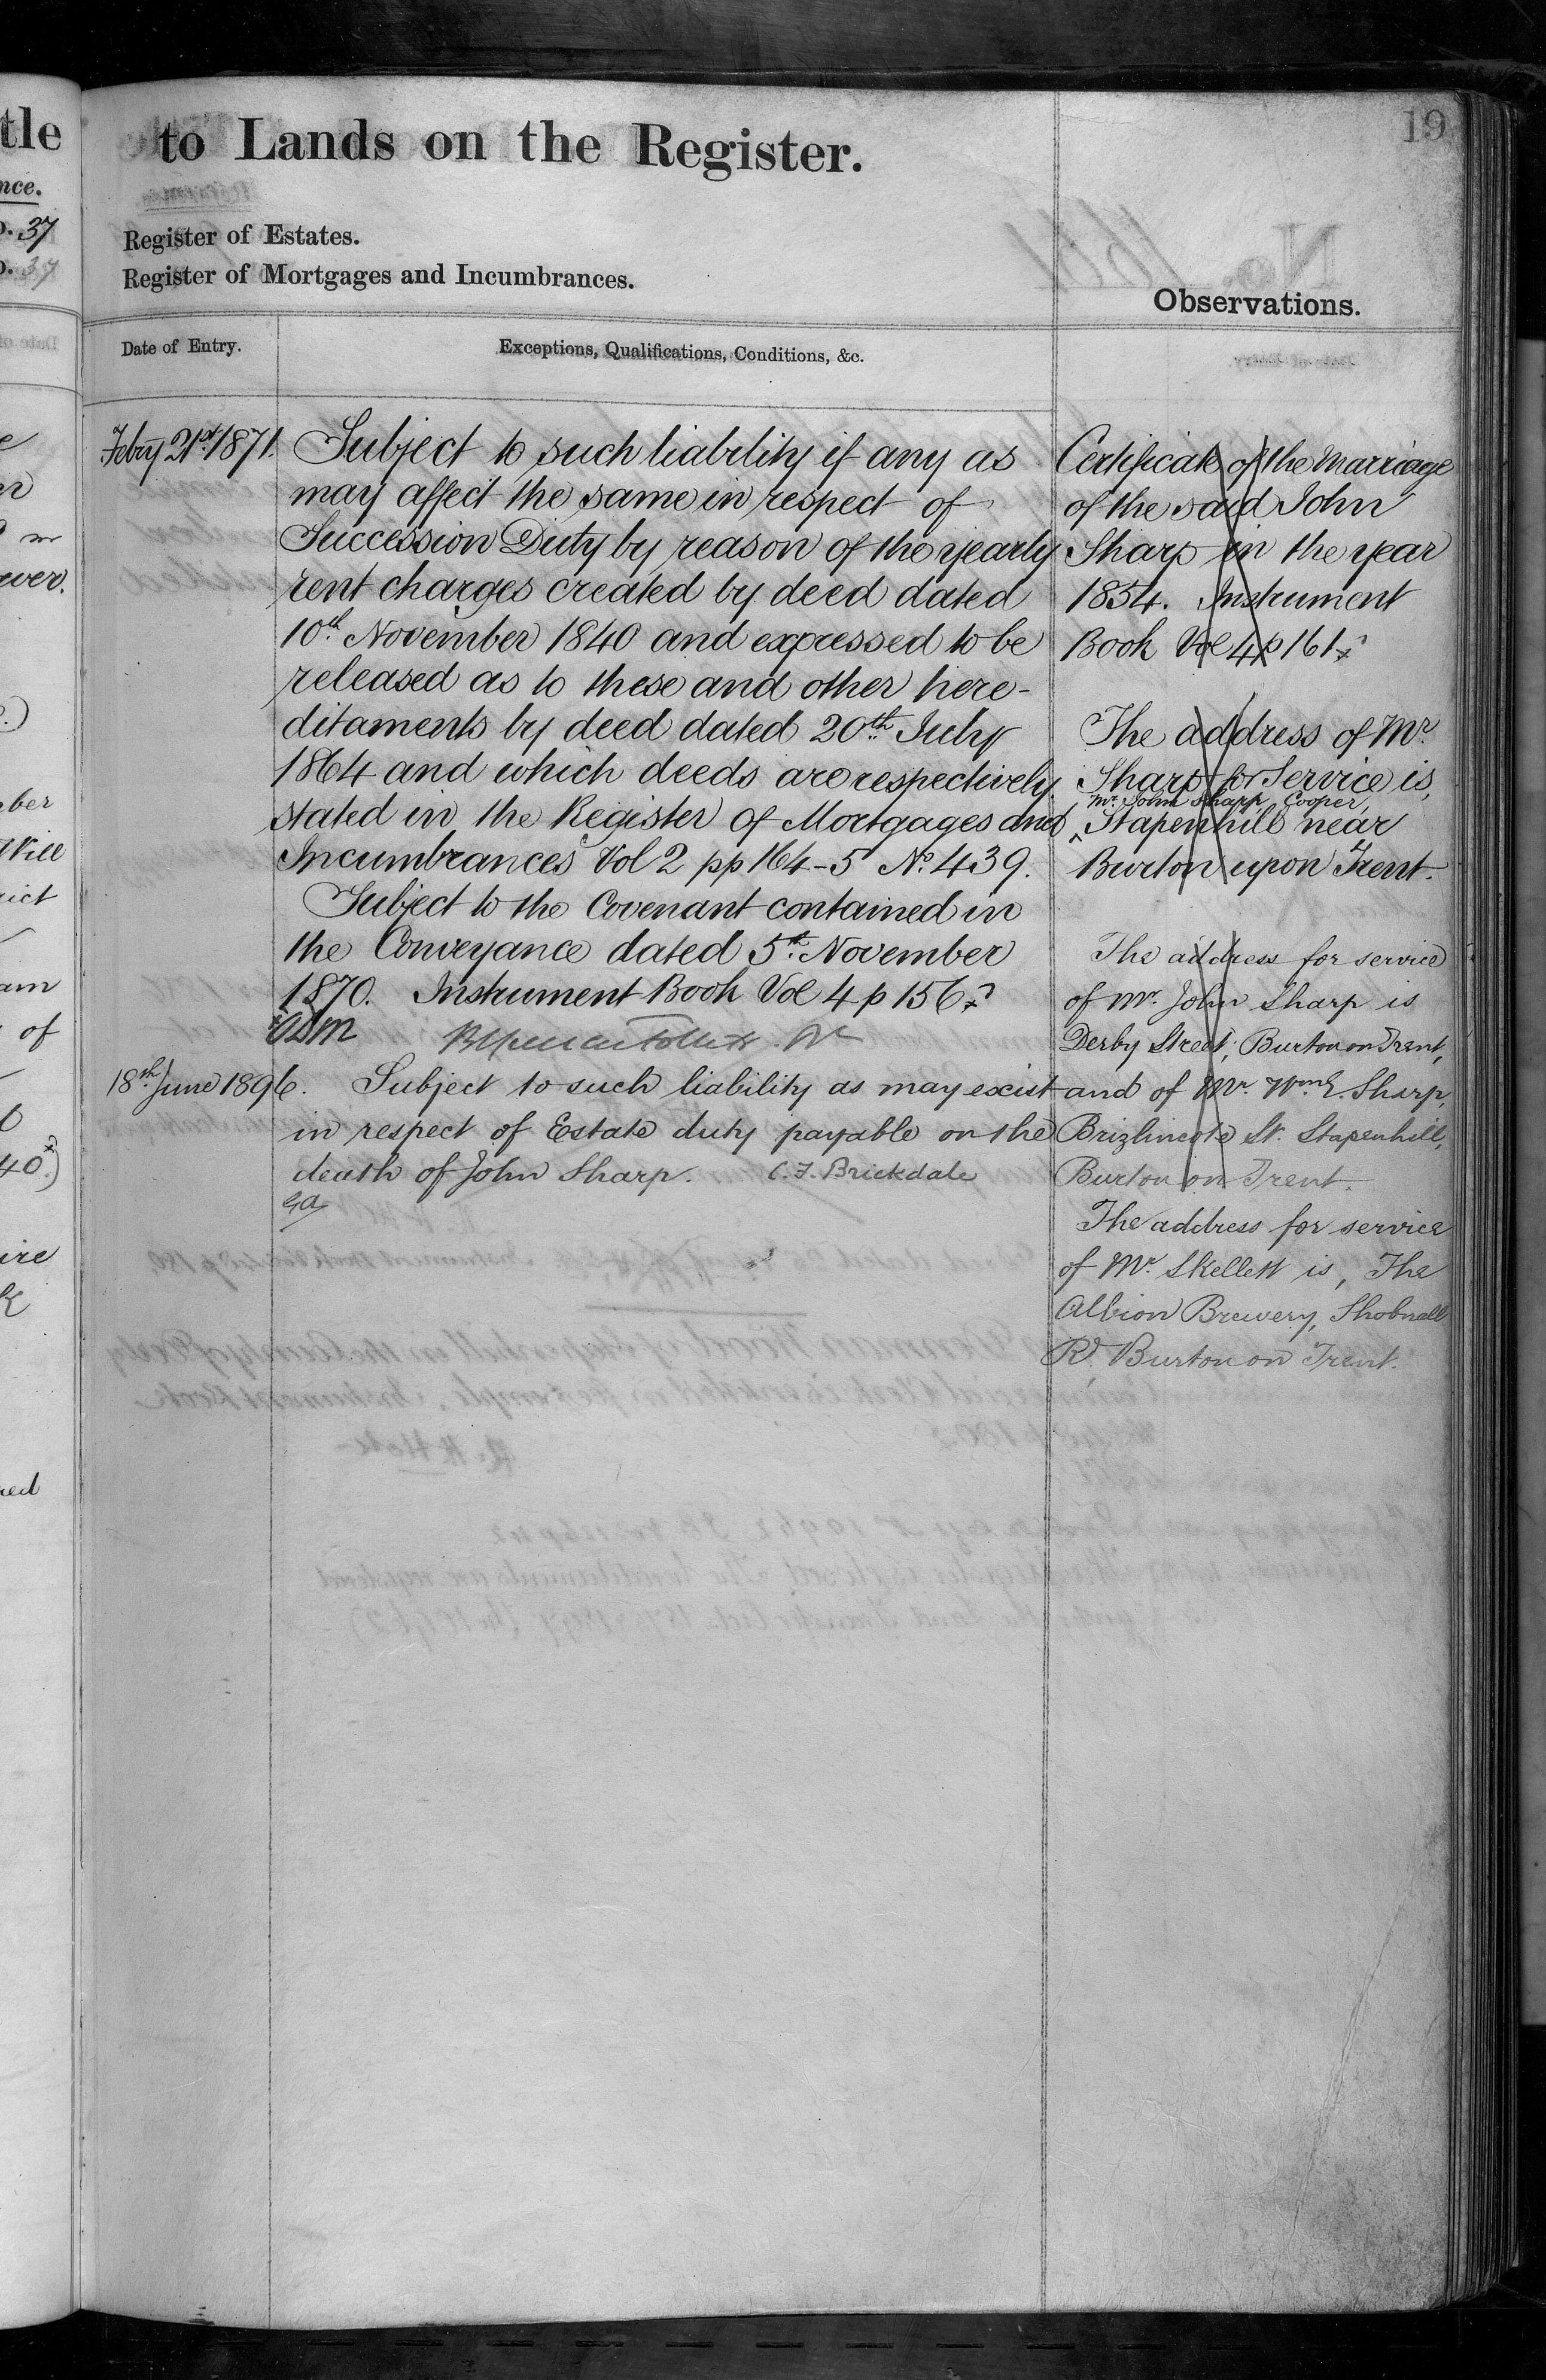 tle
to Lands on the Register.
19
nce.
37
37
Register of Estates.
Register of Mortgages and Incumbrances.
Observations.
Date of Entry.
Exceptions, Qualifications, Conditions, &c.
Febry 21st 1871.
Subject to such liability if any as
may affect the same in respect of
Succession Duty by reason of the yearly
rent charges created by deed dated
10th November 1840 and expressed to be
released as to these and other here-
ditaments by deed dated 20th July
1864 and which deeds are respectively
stated in the Register of Mortgages and
Incumbrances Vol 2 pp 164-5 No. 439.
Subject to the Covenant contained in
the Conveyance dated 5th November
1870. Instrument Book Vol 4 p 156
18th June 1896.
Subject to such liability as may exist
in respect of Estate duty payable on the
death of John Sharp. C. F. Brickdale
Certificate of the Marriage
of the said John
Sharp in the year
1854. Instrument
Book Vol 4 p 161
The address of Mr.
Sharp for Service is,
Mr. John Sharp, Cooper,
Stapenhill near
Burton upon Trent.
The address for service
of Mr. John Sharp is
Derby Street, Burton on Trent,
and of Mr. Wm. E. Sharp,
Brizlincote St. Stapenhill,
Burton on Trent.
The address for service
of Mr. Skellett is, The
Albion Brewery, Shobnall
Rd. Burton on Trent.